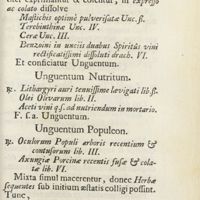 ac colato dissolve
Mastichis optimè pulverisatæ Unc. ß.
Terebinthinæ Unc. IV.
Ceræ Unc. III.
Benzoini in unciis duabus Spiritûs vini
rectificatissimi dissoluti drach. VI.
Et conficiatur Unguentum.
Unguentum Nutritum.
℞. Lithargyri auri tenuissime lævigati lib. ß.
Olei Olivarum lib. II.
Aceti vini q. s. ad nutriendum in mortario.
F. s. a. Unguentum.
Unguentum Populeon.
℞. Oculorum Populi arboris recentium &
contusorum lib. II.
Axungiæ Porcinæ recentis fusæ & cola-
tæ lib. VI.
Mixta simul macerentur, donec Herbæ
sequentes sub initium æstatis colligi possint.
Tunc,